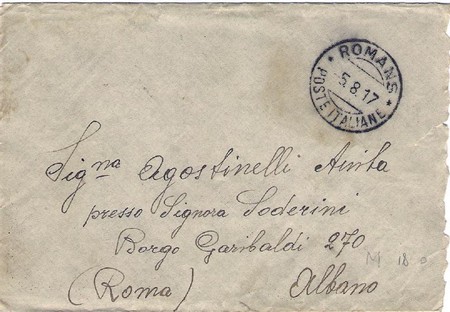 ROMANS
5.8.17
POSTE ITALIANE
Sig.na Agostinelli Anita
presso Signora Soderini
Borgo Garibaldi 270
(Roma) Albano
18